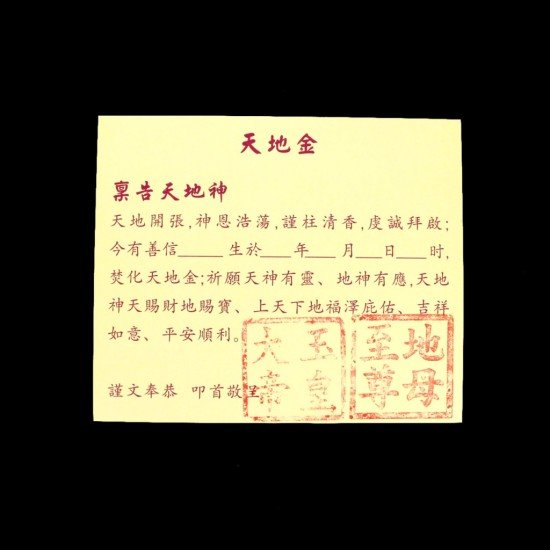 天地金
稟告天地神
天地開張,神恩浩蕩,謹柱清香,虔誠拜啟;
今有善信_____ 生於___年___月___日___时,
焚化天地金;祈願天神有靈、地神有應,天地
神天賜財地賜寶、上天下地福澤庇佑、吉祥
如意、平安順利。
謹文奉恭 叩首敬呈
玉皇大帝
地母至尊